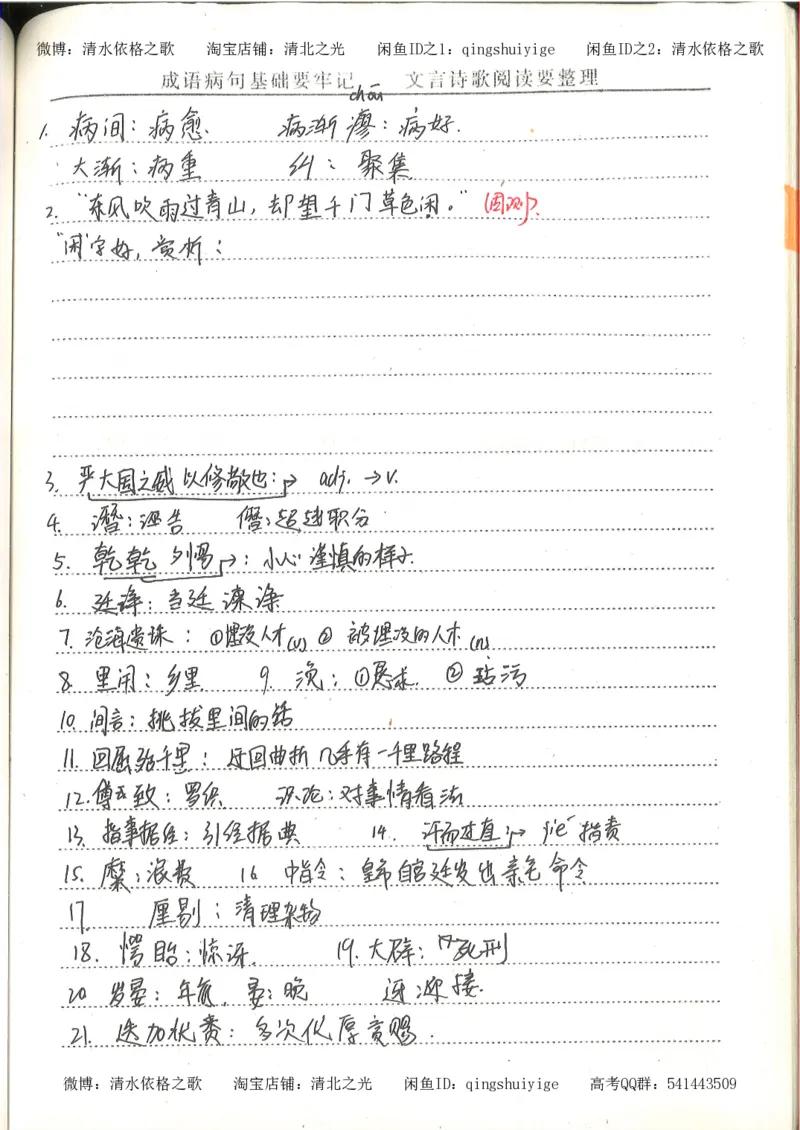 微博：清水依格之歌 淘宝店铺：清北之光 闲鱼ID之1：qingshuiyige 闲鱼ID之2：清水依格之歌
成语病句基础要牢记 文言诗歌阅读要整理
chōu
1. 病间：病愈. 病渐瘳：病好.
大渐：病重 纠：聚集
2. “东风吹雨过青山，却望千门草色闲。”(周测)
“闲”字好，赏析：
3. 严大国之威以修敬也：→ adj. → v.
4. 谮：诬告 僭：超越职分
5. 乾乾夕惕→：小心谨慎的样子.
6. 廷诤：当廷谏诤
7. 沧海遗珠：①埋没人才(v) ② 被埋没的人才(n)
8. 里闬：乡里. 9. 浼：①恳求. ②玷污
10. 间言：挑拨里间的话
11. 回屈殆千里：迂回曲折几乎有一千里路程
12. 傅致：罗织 评论：对事情看法
13. 指事据经：引经据典 14. 讦而不直：→ jié 指责
15. 糜：浪费 16 中指令：皇帝自宫廷发出亲笔命令
17. 厘剔：清理杂物
18. 愕眙：惊讶. 19. 大辟：死刑
20 岁晏：年底. 晏：晚 迓 迎接.
21. 迭加优赉：多次优厚赏赐.
微博：清水依格之歌 淘宝店铺：清北之光 闲鱼ID：qingshuiyige 高考QQ群：541443509